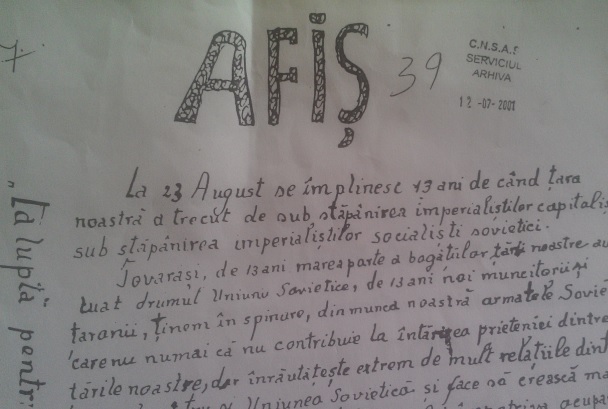 AFIȘ
39
C.N.S.A.S
SERVICIUL
ARHIVA
12 -07- 2001
La 23 August se împlinesc 13 ani de când țara
noastră a trecut de sub stăpânirea imperialiștilor capitaliș
sub stăpânirea imperialiștilor socialiști sovietici.
Tovarași, de 13 ani marea parte a bogățiilor țării noastre au
luat drumul Uniunii Sovietice, de 13 ani noi muncitorii și
țaranii, ținem în spinare, din munca noastră armatele Sovie
care nu numai că nu contribuie la întărirea prieteniei dintre
țările noastre, dar înrăutățește extrem de mult relațiile dint
și Uniunea Sovietică și face să crească ma
ocupa
„La luptă” pentr